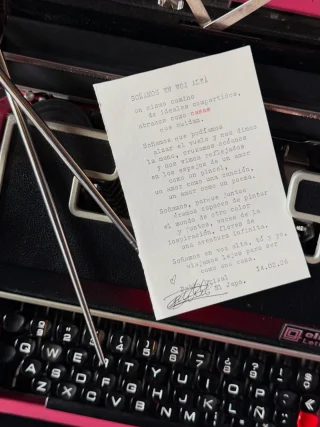 SOÑAMOS EN VOZ ALTA
un mismo camino
de ideales compartidos,
abrazos como casas
que cuidan.
Soñamos que podíamos
alzar el vuelo y nos dimos
la mano, cruzamos océanos
y nos vimos reflejados
en los espejos de un amor
como un pincel,
un amor como una canción,
un amor como un poema.
Soñamos, porque juntos
éramos capaces de pintar
el mundo de otro color
y juntos, voces de la
inspiración, flores de
una aventura infinita.
Soñamos en voz alta, tú y yo,
viajamos lejos para ser
como una casa.
El Jupa.
Q W E T Y U I O P
A S D F G H J K L Ñ
Z X C V B N M